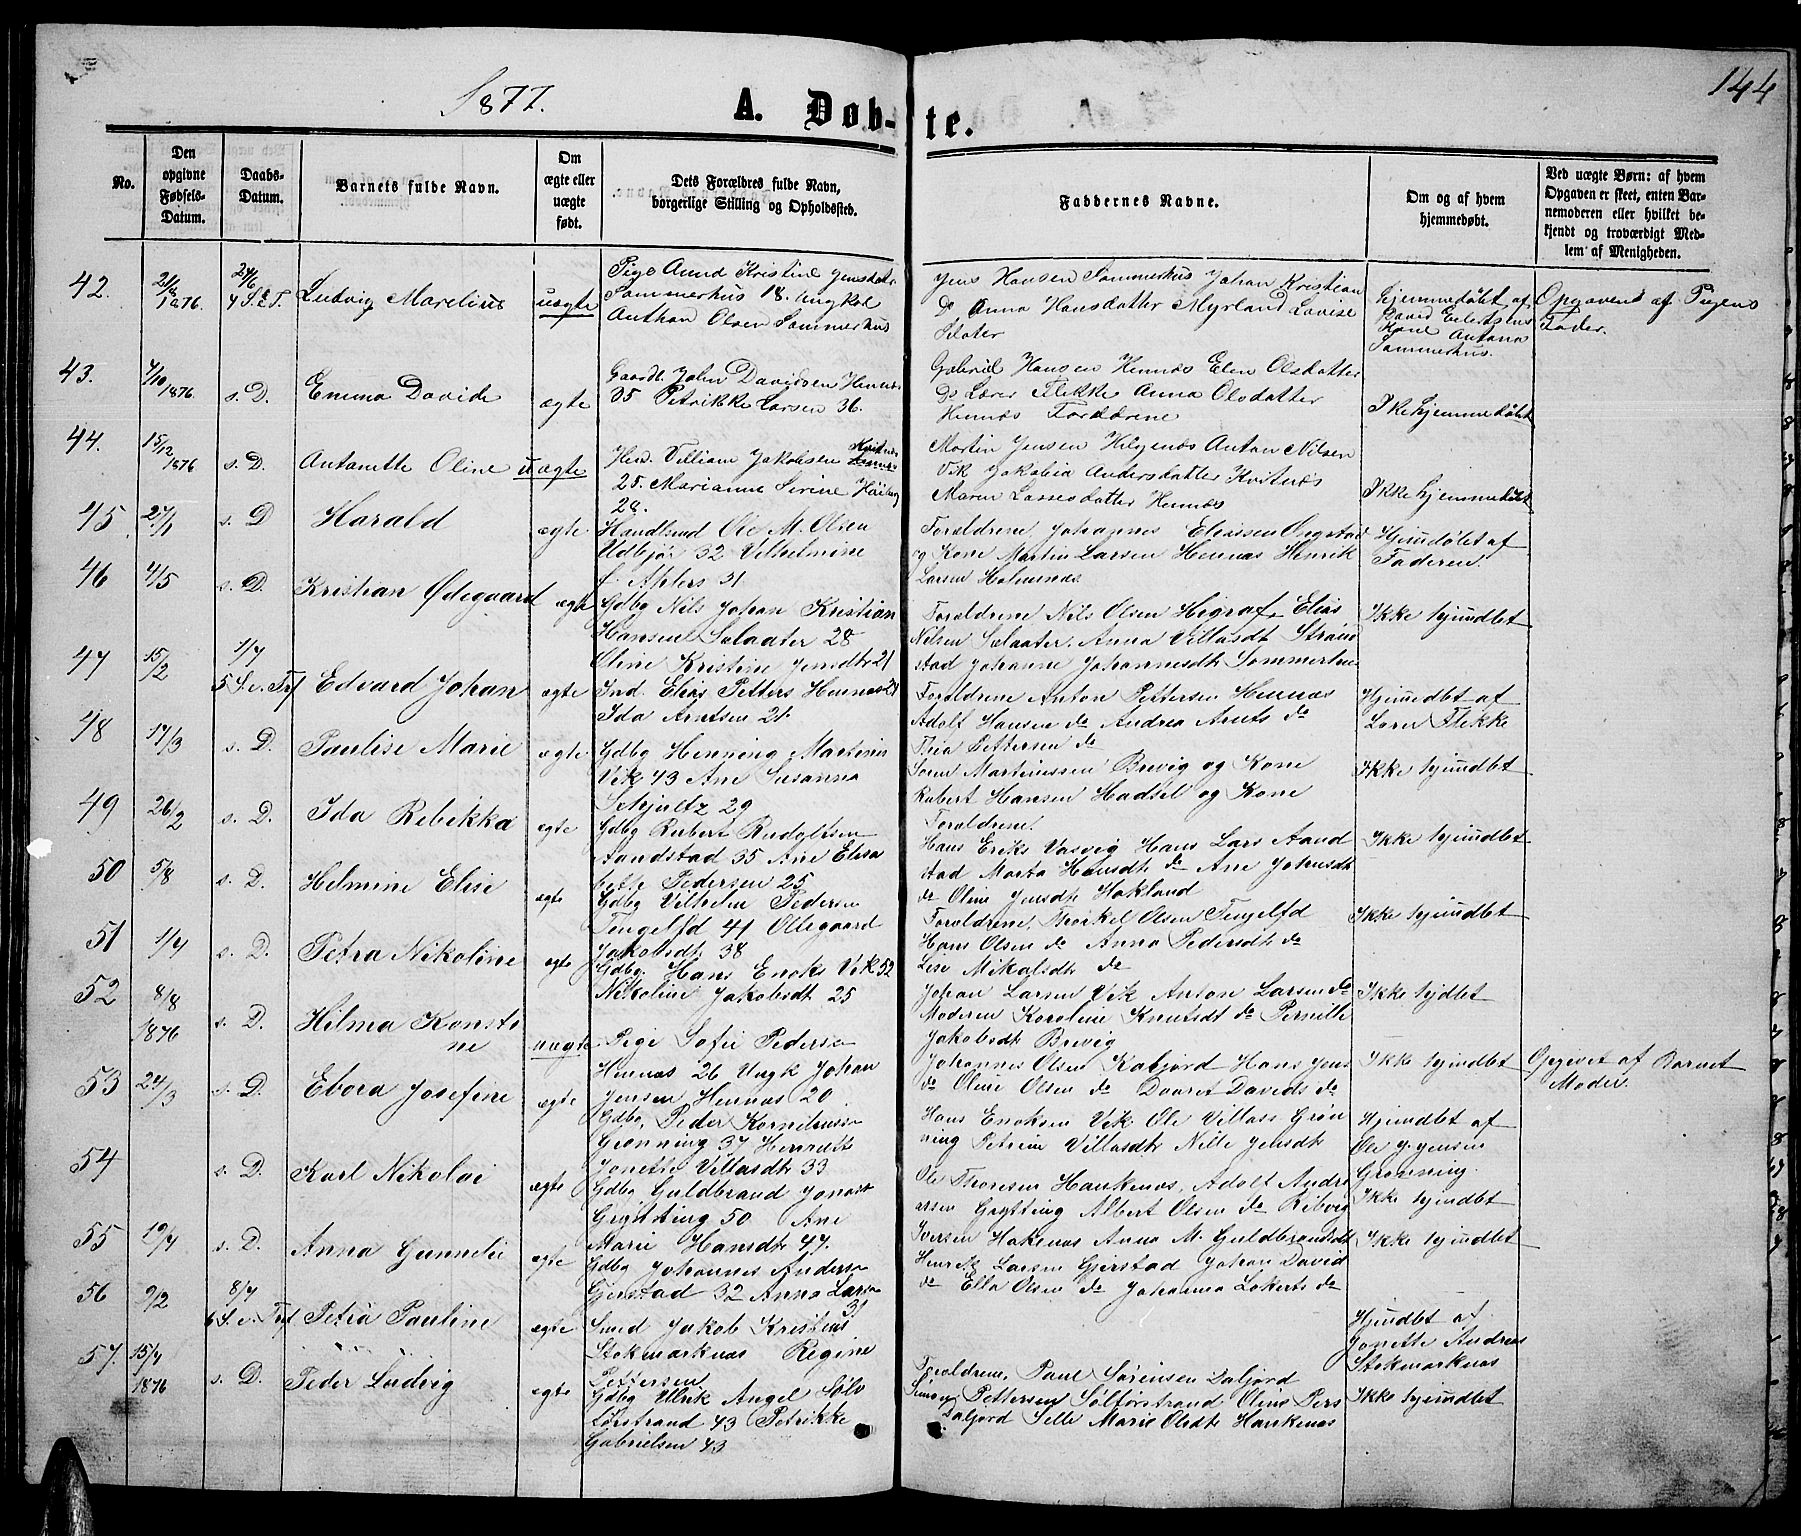 1877.
A. Døb-
te.
144
No.
Den
opgivne
Fødsels-
Datum.
Daabs-
Datum.
Barnets fulde Navn.
Om
ægte eller
uægte
født.
Dets Forældres fulde Navn,
borgerlige Stilling og Opholdssted.
Faddernes Navne.
Om og af hvem
hjemmedøbt.
Ved uægte Børn: af hvem
Opgaven er skeet, enten Bar-
nemoderen eller hvilket be-
kjendt og troværdigt Med-
lem af Menigheden.
42.
1876.
24/6
4 S. e. T.
Ludvig Marelius
uægte
Pige Anna Kristine Jensdatter
Sommerhus 18. Ungkal
Anthon Olsen Sommerhus
Jens Hansen Sommerhus Johan Kristian
do Anna Hansdatter Myrland Lovise
Slater
Hjemmedøbt af
David Eilertsens
Kone Antona
Sommerhus.
Opgaven af Pigens
Fader.
43.
7/10 1876.
s. D.
Emma Davide
ægte
Gaardb. John Davidsen Hennæs
35 Petrikke Larsen 36.
Gabriel Hansen Hennæs Elen Olsdatter
do Lærer Flekke Anna Olsdatter
Hennæs Forældrene
Ikke hjemmedøbt
44.
15/12 1876
s. D.
Antonette Oline
uægte
Villiam Jakobsen Kvitnæs
25. Marianne Serine
28.
Morten Jensen Helgenæs Anton Nilsen
Vik Jakobia Andersdatter Kvitnæs
Maren Lassesdatter Hennæs
Ikke hjemmedøbt
45.
27/1
s. D
Harald
ægte
Handlsmd Ole M. Olsen
Udbjør 32 Vilhelmine
f. Ahlers 31
Forældrene Johannes Eliassen Ongstad
og Kone Martin Larsen Hennæs Henrik
Larsen Holmsnæs
Hjemdøbt af
Faderen.
46
4/5
s. D.
Kristian Ødegaard
ægte
Gdbg Nils Johan Kristian
Hansen Selaater 28
Oline Kristine Jensdtr 21
Forældrene Nils Olsen Higraf, Elias
Nilsen Selaater. Anna Villasdt Strøm
stad Johanne Johannesdtr Sommerhus
Ikke hjemdbt
47
15/2
1/7
5 S. e. Tref
Edvard Johan
ægte
Ind. Elias Petters Hennæs
Ida Arntsen 21.
Forældrene Anton Pettersen Hennæs
Adolf Hansen do Andrea Arnts do
Thea Pettersen do
Hjemdbt af
Lærer Flekke
48
17/3
s. D.
Pauline Marie
ægte
Gdbg Henning Martinus
Vik 43 Ane Susanna
Schjultz 29
Søren Martinussen Brevig og Kone
Robert Hansen Hadsel og Kone
Forældrene.
Ikke hjemdbt
49
26/2
s. D.
Ida Rebekka
ægte
Gdbg Robert Rudolfsen
Sandstad 35 Ane Elisa
bette Pedersen 25
Hans Eriks Vasvig Hans Lars Sand
stad Marta Hansdt do Ane Johnsdt
do Oline Jensdt Hokland
Ikke hjemdbt
50
5/8
s. D.
Helmine Elise
ægte
Gdbg Vilhelm Pedersen
Tengelfd 41 Ollegaard
Jakobsdt 38
Forældrene, Thorkel Olsen Tengelfd
Hans Olsen do Anna Pedersdt do
Lise Mikalsdt do
Ikke hjemdbt
51
1/4
s. D.
Petra Nikoline
ægte
Gdbg. Hans Enoks Vik 52
Nikoline Jakobsdt 25
Johan Larsen Vik Anton Larsen do
Moderen Karoline Knutsdt do Pernille
Jakobsdt Brevig
Ikke hjdbt
52
8/8
1876
s. D.
Hilma Konsti
ne
uægte
Pige Sofie Peders
Hennæs 26 Ungk Johan
Jensen Hennæs 20
Johannes Olsen Kafjord Hans Jens
do Oline Olsen do Daaret Davids do
Ikke hjemdbt
Opgivet af Barnets
Moder.
53
24/3
s. D.
Ebora Josefine
ægte
Gdbg, Peder Kornelius
Grønning 37 Henrikke
Jonette Villasdtr 33
Hans Enoksen Vik Ole Villass Grøn
ning Petrine Villasdtr Nille Jensdt
Hjemdbt af
Ole Jørgensen
Grønning.
54
s. D.
Karl Nikolai
ægte
Gdbg Guldbrand Jonas
Grytting 50 Ane
Marie Hansdt 47.
Ole Thoresen Haukenæs, Adolf Andre
assen Grytting Albert Olsen do
Iversen Hokenæs Anna M. Guldbrandsdt
Ikke hjemdbt
55
19/4
s. D.
Anna Gunnelie
ægte
Gdbg Johannes Anders
Gjerstad 32 Anna Lars
31
Henrik Larsen Gjerstad Johan David
do Ella Olsen do Johanna Lokerts do
Ikke hjemdbt
56
9/2
8/7
6 S. e. Tref
Petra Pauline
ægte
Smed Jakob Kristens
Stokmarknæs Regine
Pettersen
Hjemdbt af
Jonette Andreas
Stokmarknæs
57.
15/7
1876
s. D.
Peder Ludvig
ægte
Gdbg Ulrik Angel Sølv
førstrand 43 Petrikke
Gabrielsen 43
Forældrene, Paul Sørensen Daljord
Simon Pettersen Sølførstrand Oline Pers
Daljord Sille Marie Olsdt Haukenæs
Ikke hjemdbt